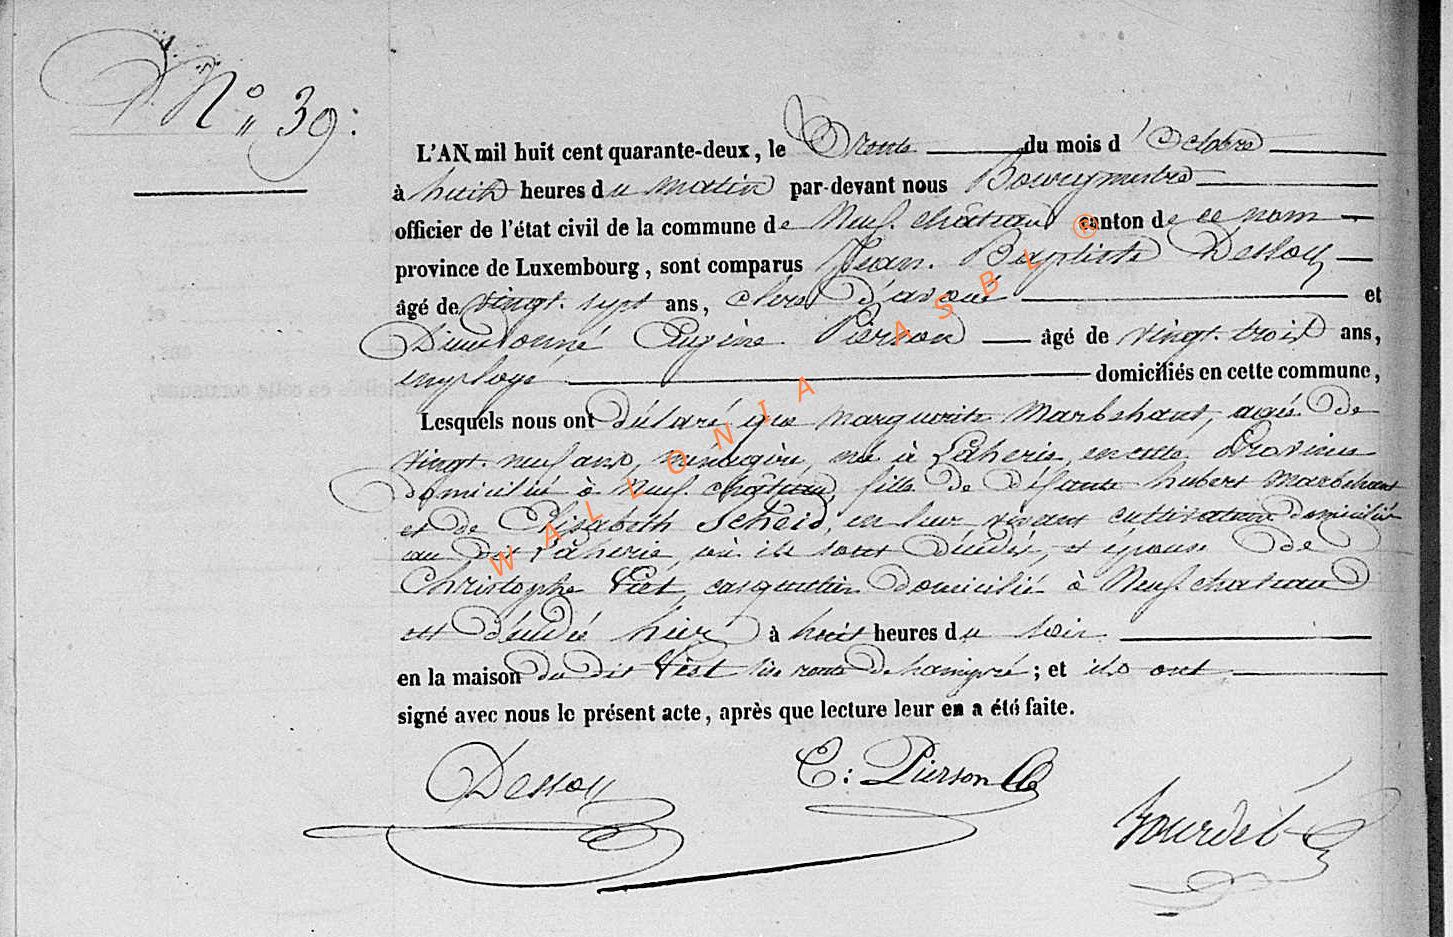 N° 39:
L'AN mil huit cent quarante-deux, le Trente du mois d'Octobre
à huit heures du matin par-devant nous Bourgmestre
officier de l'état civil de la commune de Neufchâteau canton de ce nom
province de Luxembourg, sont comparus Jean Baptiste Dessoy
âgé de vingt-sept ans, clerc d'avoué et
Dieudonné Eugène Pierson âgé de vingt-trois ans,
employé domiciliés en cette commune,
Lesquels nous ont déclaré que Marguerite Marbehant, agée de
vingt-neuf ans, ménagère, née à Laherie, en cette Province
domiciliée à Neufchâteau, fille de défunts hubert Marbehant
et de Elisabeth Scheid, en leur vivant cultivateurs domiciliés
au dit Laherie, où ils sont décédés, et épouse de
Christophe casquettier domicilié à Neufchateau
est décédée hier à huit heures du soir
en la maison du dit route de ; et ils ont
signé avec nous le présent acte, après que lecture leur en a été faite.
Dessoy
E: Pierson
Bourdé
WALLONIA ASBL ®